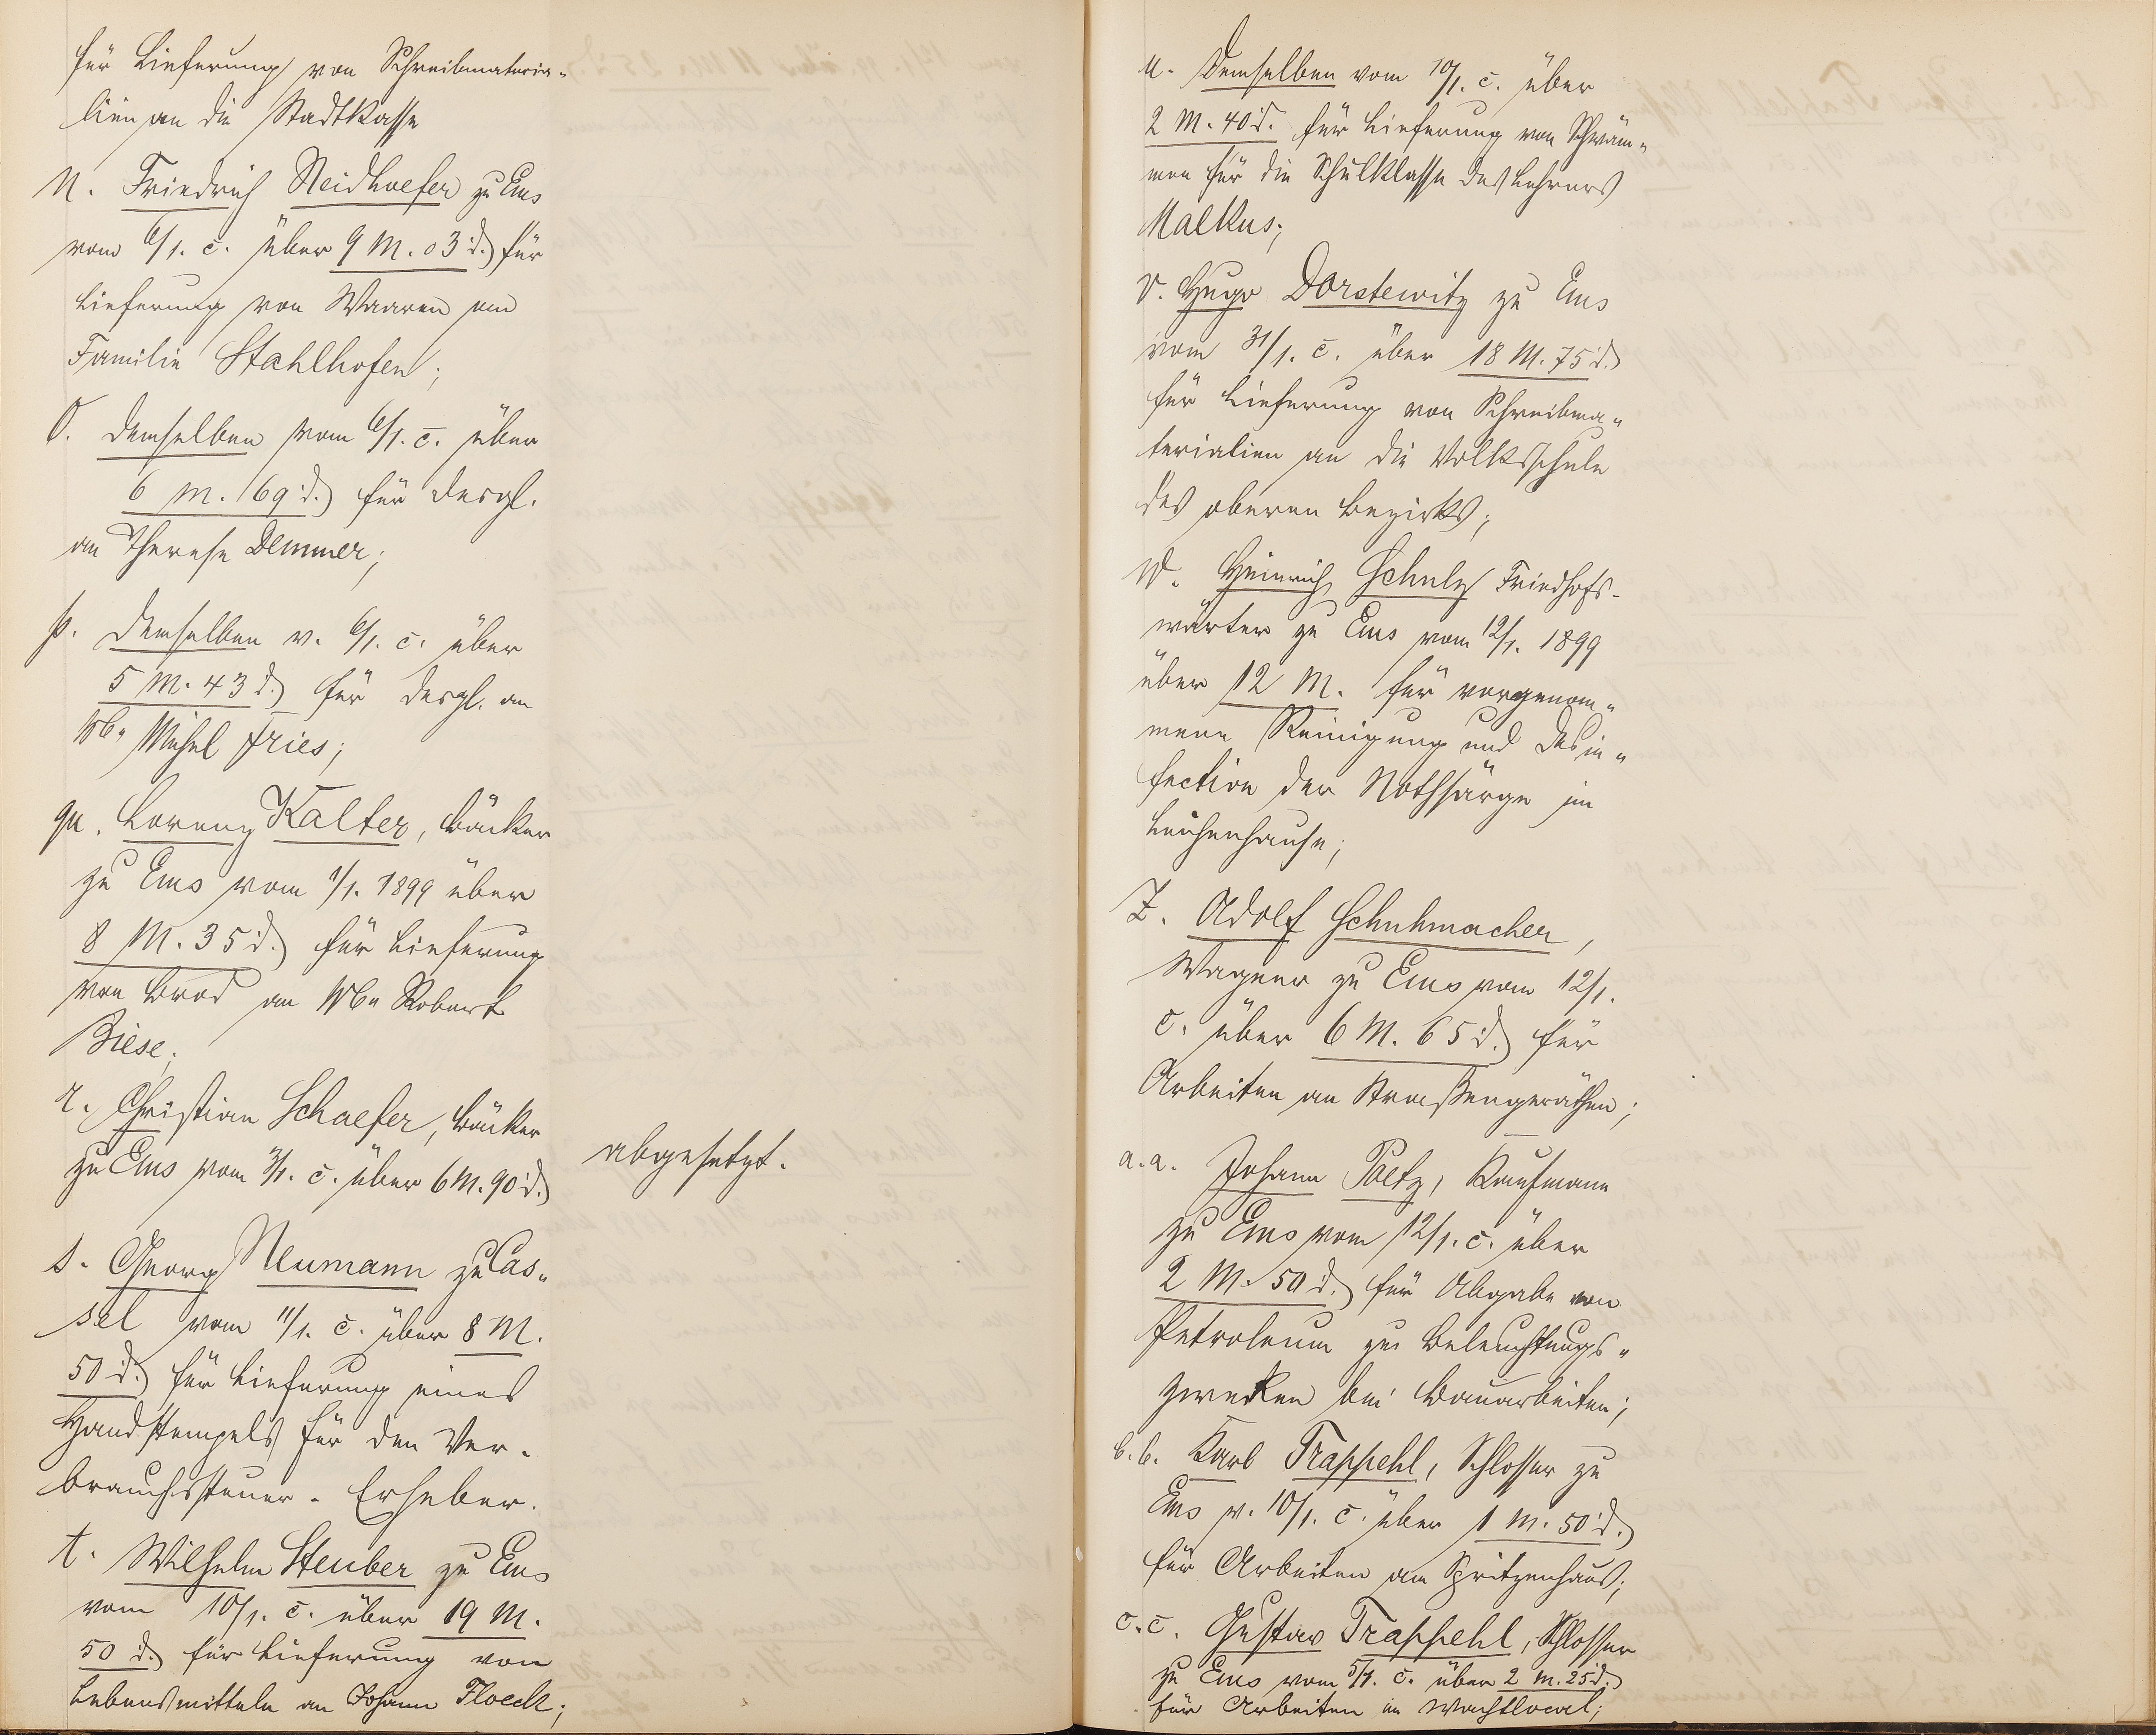 für Lieferung von Schreibmateria-
lien an die Stadtkasse
n. Friedrich Neidhoefer zu Ems
vom 6/1. c. über 9 M. 03 d. für
Lieferung von Waaren an
Familie Stahlhofen;
o. demselben vom 6/1. c. über
6 M. 69 d. für desgl.
an Therese Demmer;
p. demselben v. 6/1. c. über
5 M. 43 d. für desgl. an
Wb. Michel Fries;
qu. Lorenz Kalter, Bäcker
zu Ems vom 1/1. 1899 über
8 M. 35 d. für Lieferung
von Brod an Wb. Robert
Biese;
r. Christian Schaefer, Bäcker
zu Ems vom 3/1. c. über 6 M. 90 d.
abgesetzt.
s. Georg Neumann zu Cas-
sel vom 11/1. c. über 8 M.
50 d. für Lieferung eines
Handstempels für den Ver-
brauchssteuer-Erheber.
t. Wilhelm Steuber zu Ems
vom 10/1. c. über 19 M.
50 d. für Lieferung von
Lebensmitteln an Johann Floeck;
u. Demselben vom 10/1. c. über
2 M. 40 d. für Lieferung von Schwäm-
men für die Schulklasse des Lehrers
Malkus;
v. Hugo Dorstewitz zu Ems
vom 31/1. c. über 18 M. 75 d.
für Lieferung von Schreibma-
terialien an die Volksschule
des oberen Bezirks;
W. Heinrich Schulz Friedhofs-
wärter zu Ems vom 12/1. 1899
über 12 M. für vorgenom-
mene Reinigung und Desin-
fection der Nothsärge im
Leichenhause;
Z. Adolf Schuhmacher,
Wagner zu Ems vom 12/1.
c. über 6 M. 65 d. für
Arbeiten an Straßengeräthen;
a.a. Johann Paltz, Kaufmann
zu Ems vom 12/1. c. über
2 M. 50 d. für Abgabe von
Petroleum zu Beleuchtungs-
zwecken bei Bauarbeiten;
b.b. Karl Trappehl, Schlosser zu
Ems v. 10/1. c. über 1 M. 50 d.
für Arbeiten am Spritzenhaus;
c.c. Gustav Trappehl, Schlosser
zu Ems vom 5/1. c. über 2 M. 25 d.
für Arbeiten im Wachtlocal;